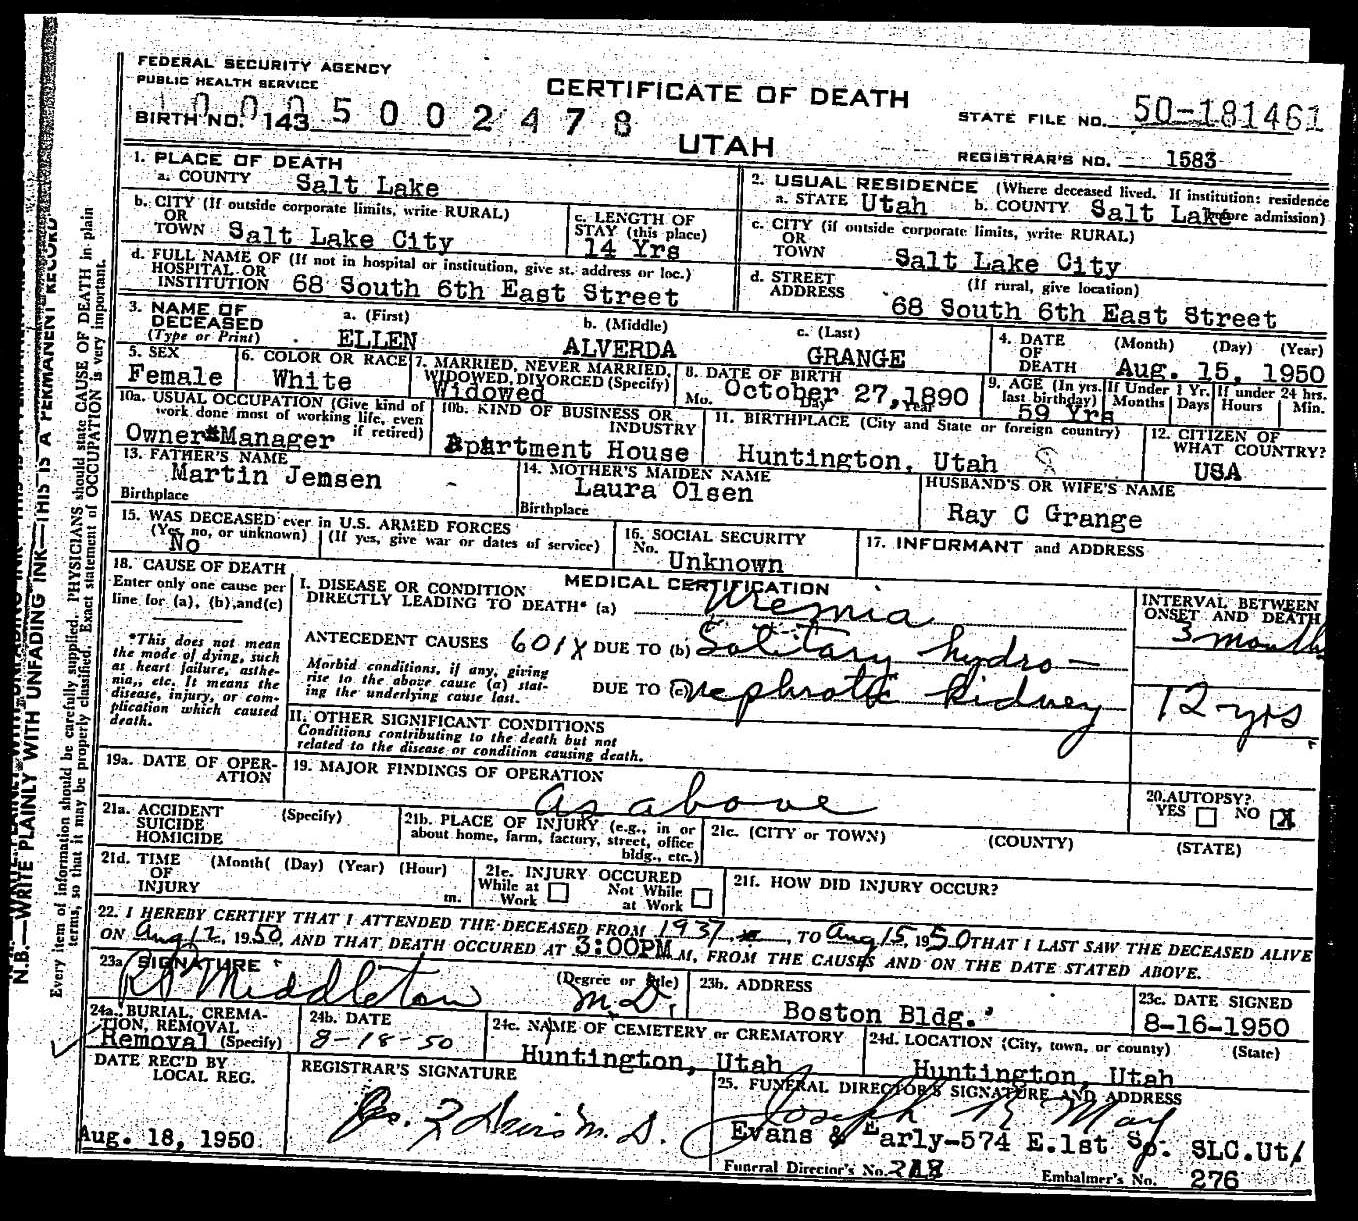 FEDERAL SECURITY AGENCY
PUBLIC HEALTH SERVICE
CERTIFICATE OF DEATH
BIRTH NO. 143 5 0 0 2 4 7 8
UTAH
STATE FILE NO. 50-181461
REGISTRAR'S NO. 1583
1. PLACE OF DEATH
a. COUNTY Salt Lake
2. USUAL RESIDENCE (Where deceased lived. If institution: residence before admission)
a. STATE Utah b. COUNTY Salt Lake
b. CITY (If outside corporate limits, write RURAL)
OR
TOWN Salt Lake City
c. LENGTH OF
STAY (this place)
14 Yrs
c. CITY (if outside corporate limits, write RURAL)
OR
TOWN Salt Lake City
d. FULL NAME OF (If not in hospital or institution, give st. address or loc.)
HOSPITAL OR
INSTITUTION 68 South 6th East Street
d. STREET (If rural, give location)
ADDRESS 68 South 6th East Street
3. NAME OF
DECEASED
(Type or Print)
a. (First) b. (Middle) c. (Last)
ELLEN ALVERDA GRANGE
4. DATE
OF
DEATH
(Month) (Day) (Year)
Aug. 15, 1950
5. SEX
Female
6. COLOR OR RACE
White
7. MARRIED, NEVER MARRIED,
WIDOWED, DIVORCED (Specify)
Widowed
8. DATE OF BIRTH
Mo. Day Year
October 27, 1890
9. AGE (In yrs. last birthday)
59 Yrs
If Under 1 Yr.
Months Days
If under 24 hrs.
Hours Min.
10a. USUAL OCCUPATION (Give kind of
work done most of working life, even
if retired)
Owner Manager
10b. KIND OF BUSINESS OR
INDUSTRY
Apartment House
11. BIRTHPLACE (City and State or foreign country)
Huntington, Utah
12. CITIZEN OF
WHAT COUNTRY?
USA
13. FATHER'S NAME
Martin Jemsen
Birthplace
14. MOTHER'S MAIDEN NAME
Laura Olsen
Birthplace
HUSBAND'S OR WIFE'S NAME
Ray C Grange
15. WAS DECEASED ever in U.S. ARMED FORCES
(Yes, no, or unknown) (If yes, give war or dates of service)
No
16. SOCIAL SECURITY
No. Unknown
17. INFORMANT and ADDRESS
18. CAUSE OF DEATH
Enter only one cause per
line for (a), (b), and(c)
*This does not mean
the mode of dying, such
as heart failure, asthe-
nia,, etc. It means the
disease, injury, or com-
plication which caused
death.
MEDICAL CERTIFICATION
I. DISEASE OR CONDITION
DIRECTLY LEADING TO DEATH* (a) Uremia
ANTECEDENT CAUSES 601X DUE TO (b) Solitary hydro-
Morbid conditions, if any, giving
rise to the above cause (a) stat-
ing the underlying cause last.
DUE TO (c) nephrotic Kidney
INTERVAL BETWEEN
ONSET AND DEATH
3 months
12 yrs
II. OTHER SIGNIFICANT CONDITIONS
Conditions contributing to the death but not
related to the disease or condition causing death.
19a. DATE OF OPER-
ATION
19. MAJOR FINDINGS OF OPERATION
as above
20. AUTOPSY?
YES NO X
21a. ACCIDENT
SUICIDE
HOMICIDE
(Specify)
21b. PLACE OF INJURY (e.g., in or
about home, farm, factory, street, office
bldg., etc.)
21c. (CITY or TOWN) (COUNTY) (STATE)
21d. TIME
OF
INJURY
(Month( (Day) (Year) (Hour)
m.
21e. INJURY OCCURED
While at Work Not While at Work
21f. HOW DID INJURY OCCUR?
22. I HEREBY CERTIFY THAT I ATTENDED THE DECEASED FROM 1937, TO Aug 15, 1950 THAT I LAST SAW THE DECEASED ALIVE
ON Aug 12, 1950, AND THAT DEATH OCCURED AT 3:00PM M, FROM THE CAUSES AND ON THE DATE STATED ABOVE.
23a SIGNATURE (Degree or title)
Middleton M.D.
23b. ADDRESS
Boston Bldg.
23c. DATE SIGNED
8-16-1950
24a. BURIAL, CREMA-
TION, REMOVAL
(Specify)
Removal
24b. DATE
8-18-50
24c. NAME OF CEMETERY or CREMATORY
Huntington, Utah
24d. LOCATION (City, town, or county) (State)
Huntington, Utah
DATE REC'D BY
LOCAL REG.
Aug. 18, 1950
REGISTRAR'S SIGNATURE
M. D.
25. FUNERAL DIRECTOR'S SIGNATURE AND ADDRESS
Joseph May
Evans & Early-574 E.1st So. SLC.Ut/
Funeral Director's No.
Embalmer's No. 276
N.B.—WRITE PLAINLY WITH UNFADING INK—THIS IS A PERMANENT RECORD
Every item of information should be carefully supplied. PHYSICIANS should state CAUSE OF DEATH in plain
terms, so that it may be properly classified. Exact statement of OCCUPATION is very important.